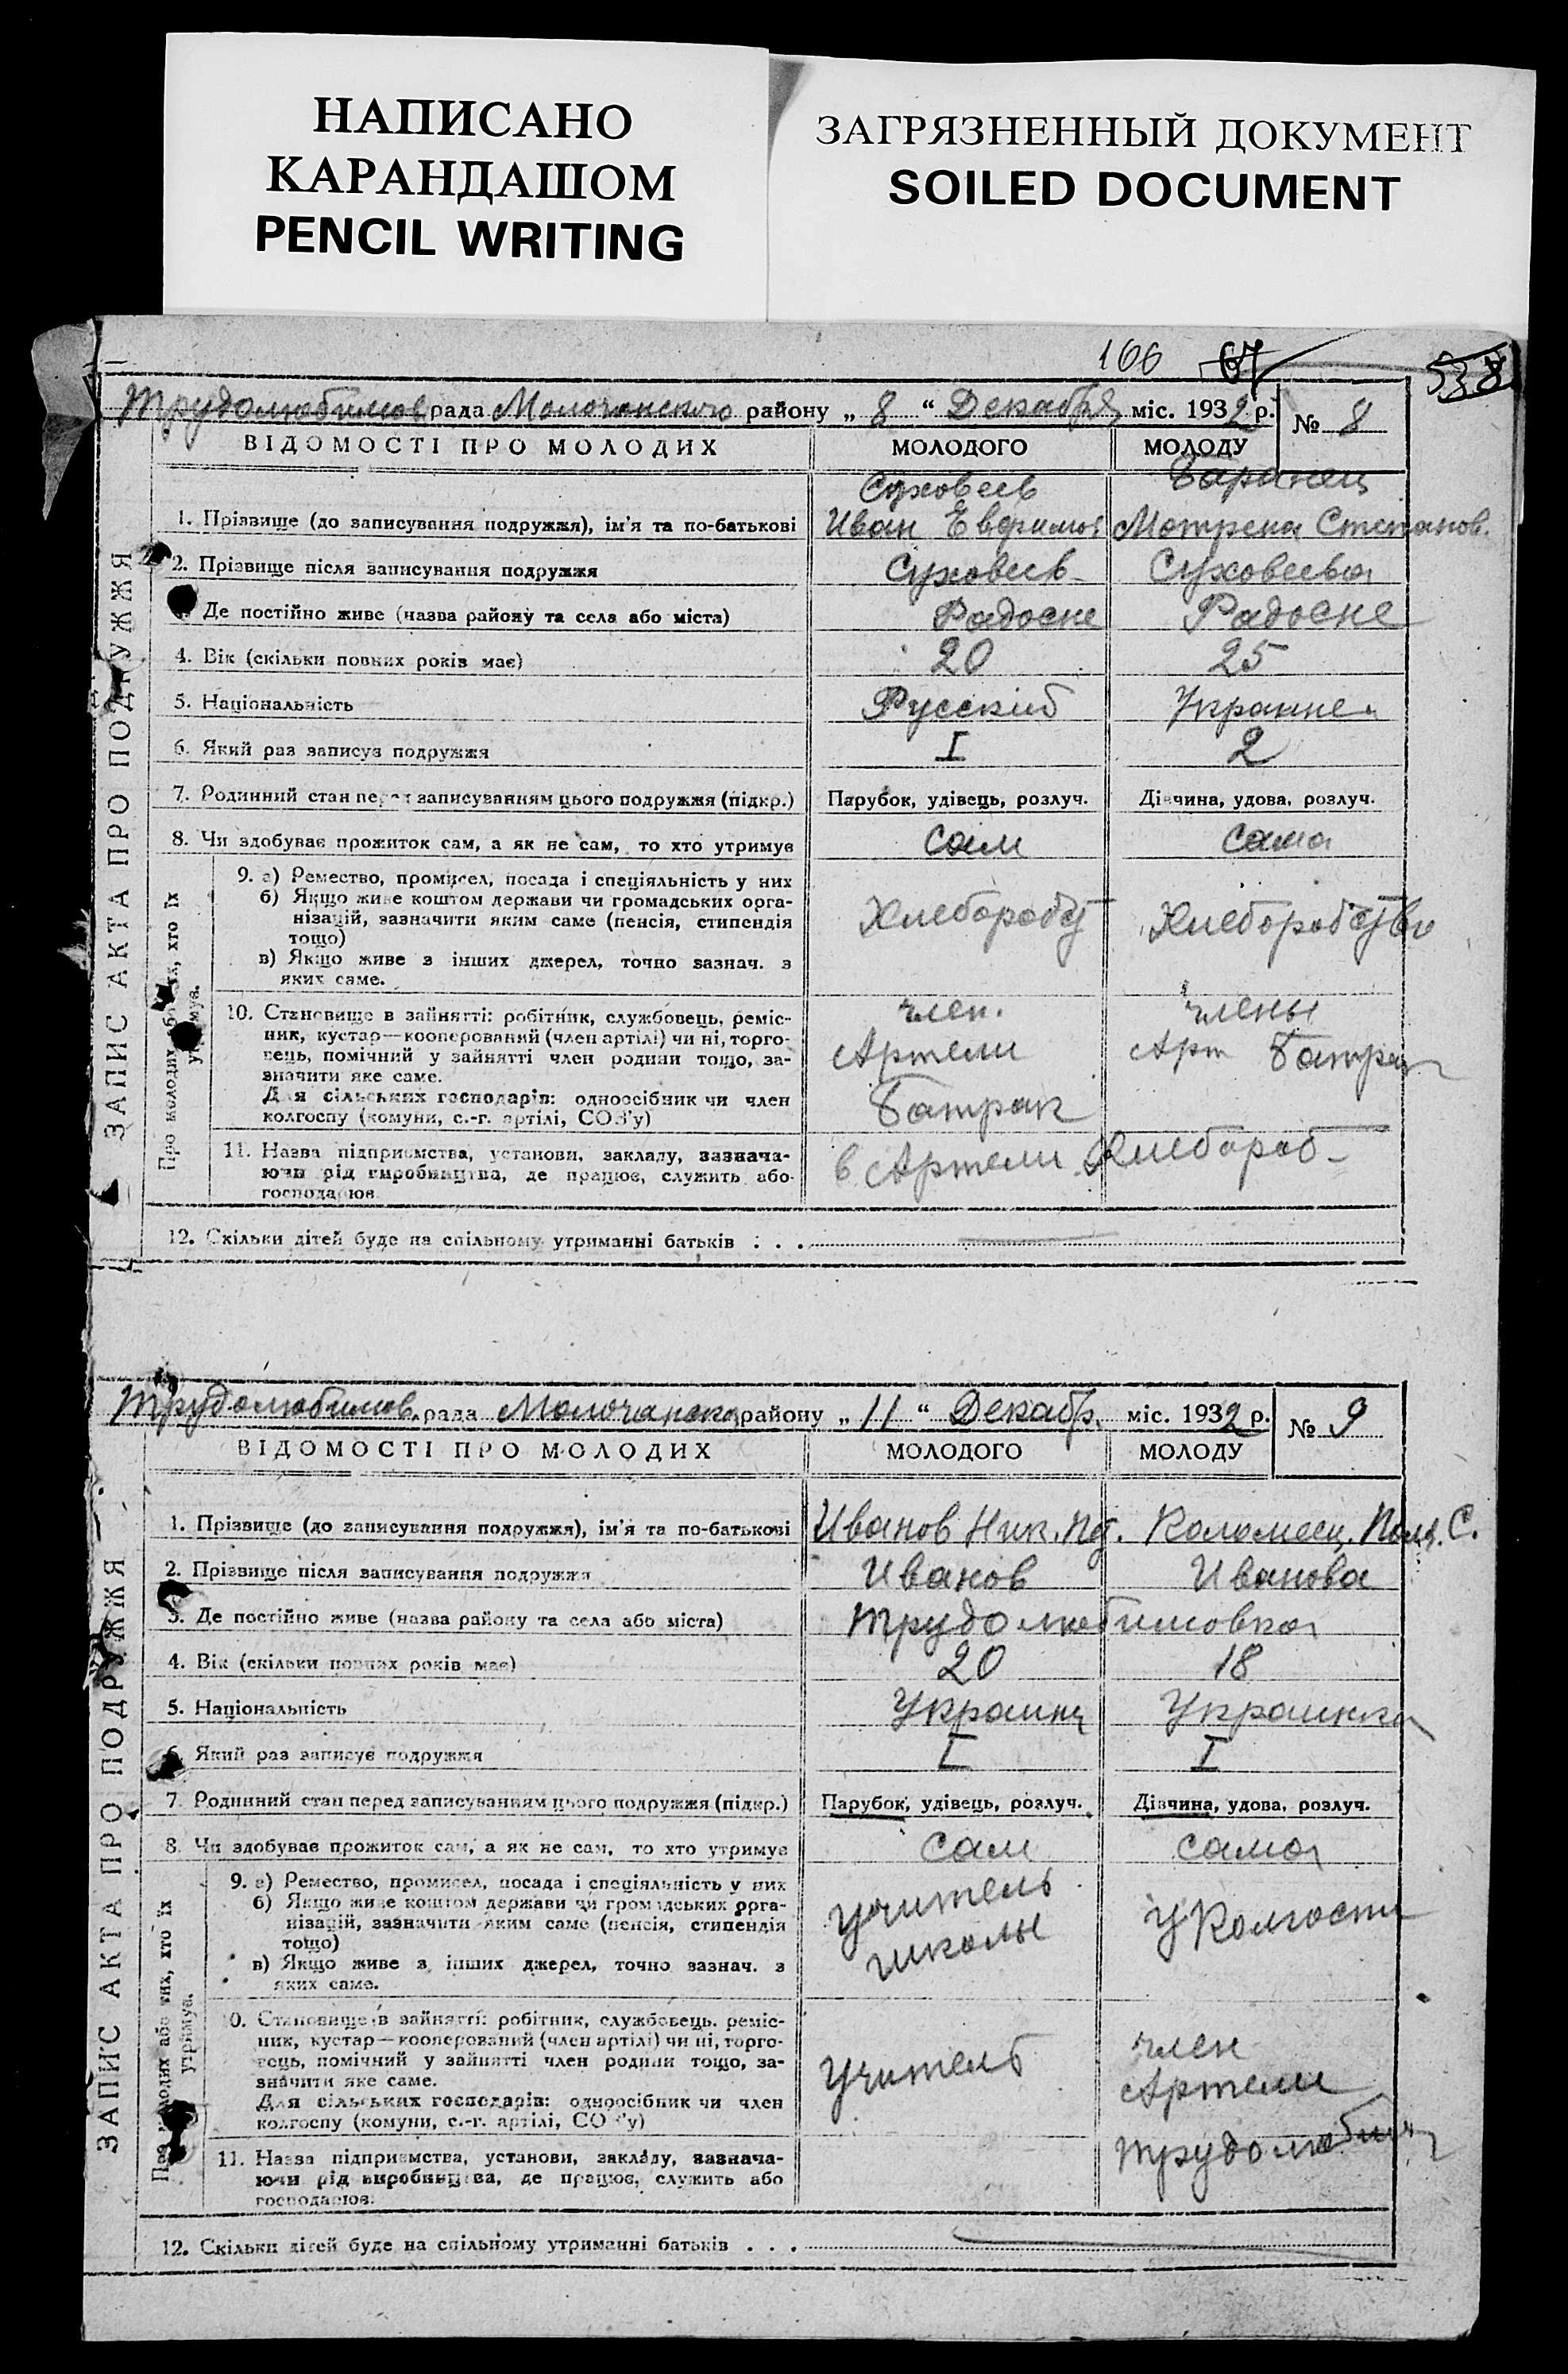 НАПИСАНО
КАРАНДАШОМ
PENCIL WRITING
ЗАГРЯЗНЕННЫЙ ДОКУМЕНТ
SOILED DOCUMENT
166 67 538
Трудолюбимов рада Молочанского району „ 8 “ Декабря міс. 1932 р. № 8
ВІДОМОСТІ ПРО МОЛОДИХ МОЛОДОГО МОЛОДУ
ЗАПИС АКТА ПРО ПОДРУЖЖЯ
Суховеев Баранец
1. Прізвище (до записування подружжя), ім'я та по-батькові Иван Евфимов Мотрена Степанов.
2. Прізвище після записування подружжя Суховеев Суховеева
Де постійно живе (назва району та села або міста) Радосне Радосне
4. Вік (скільки повних років має) 20 25
5. Національність Русский
6. Який раз записує подружжя I 2
7. Родинний стан перед записуванням цього подружжя (підкр.) Парубок, удівець, розлуч. Дівчина, удова, розлуч.
8. Чи здобуває прожиток сам, а як не сам, то хто утримує сам сама
Про молодих або тих, хто їх утримує.
9. а) Ремество, промисел, посада і спеціяльність у них
б) Якщо живе коштом держави чи громадських орга-
нізацій, зазначити яким саме (пенсія, стипендія
тощо)
в) Якщо живе з інших джерел, точно зазнач. з
яких саме.
Хлеборобст Хлеборобство
10. Становище в зайнятті: робітник, службовець, реміс-
ник, кустар—кооперований (член артілі) чи ні, торго-
вець, помічний у зайнятті член родини тощо, за-
значити яке саме.
Для сільських господарів: одноосібник чи член
колгоспу (комуни, с.-г. артілі, СОЗ'у)
член.
Артели
Батрак
члены
Арт Батрач
11. Назва підприємства, установи, закладу, зазнача-
ючи рід виробництва, де працює, служить або
господарює.
в Артели Хлебороб
12. Скільки дітей буде на спільному утриманні батьків . . .
Трудолюбимов. рада Молочанско району „ 11 “ Декабр. міс. 1932 р. № 9
ВІДОМОСТІ ПРО МОЛОДИХ МОЛОДОГО МОЛОДУ
ЗАПИС АКТА ПРО ПОДРУЖЖЯ
1. Прізвище (до записування подружжя), ім'я та по-батькові Иванов Ник. Коломеец. С.
2. Прізвище після записування подружжя Иванов Иванова
3. Де постійно живе (назва району та села або міста) Трудолюбимовка
4. Вік (скільки повних років має) 20 18
5. Національність Украинц Украинка
6. Який раз записує подружжя I I
7. Родинний стан перед записуванням цього подружжя (підкр.) Парубок, удівець, розлуч. Дівчина, удова, розлуч.
8. Чи здобуває прожиток сам, а як не сам, то хто утримує сам сама
Про молодих або тих, хто їх утримує.
9. а) Ремество, промисел, посада і спеціяльність у них
б) Якщо живе коштом держави чи громадських орга-
нізацій, зазначити яким саме (пенсія, стипендія
тощо)
в) Якщо живе з інших джерел, точно зазнач. з
яких саме.
учитель
школы
У Колгоспи
10. Становище в зайнятті: робітник, службовець, реміс-
ник, кустар—кооперований (член артілі) чи ні, торго-
вець, помічний у зайнятті член родини тощо, за-
значити яке саме.
Для сільських господарів: одноосібник чи член
колгоспу (комуни, с.-г. артілі, СОЗ'у)
Учитель
член
Артели
11. Назва підприємства, установи, закладу, зазнача-
ючи рід виробництва, де працює, служить або
господарює.
Трудолюбим
12. Скільки дітей буде на спільному утриманні батьків . . .